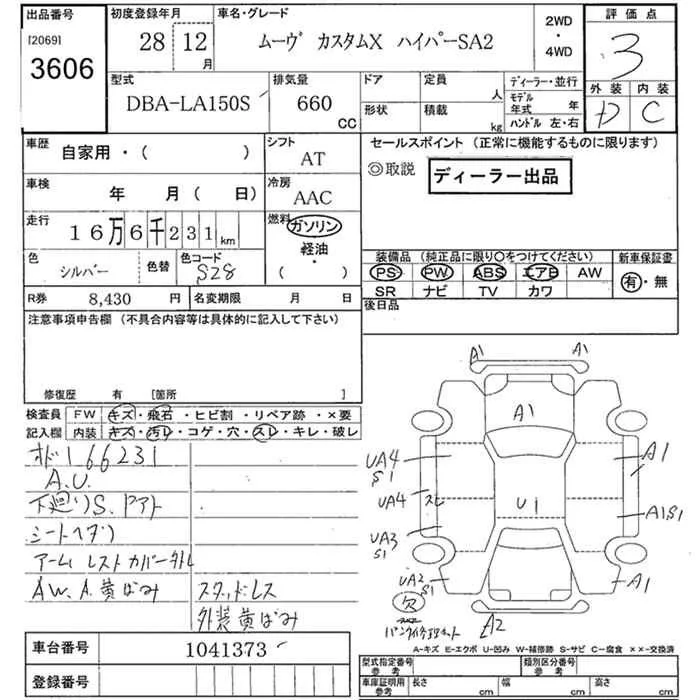 出品番号 初度登録年月 車名・グレード 2WD・4WD 評価点
[2069] 28 12月 ムーヴ カスタムX ハイパーSA2 3
3606
外装 内装
型式 排気量 ドア 定員 人 ディーラー・並行
DBA-LA150S 660 CC 形状 積載 kg モデル年式 年
ハンドル 左・右
D C
車歴 自家用・( ) シフト AT
セールスポイント (正常に機能するものに限ります)
◎取説 ディーラー出品
車検 年 月( 日) 冷房 AAC
走行 16万6千231km 燃料 ガソリン・軽油・( )
色 シルバー 色替 色コード S28
装備品 (純正品に限り○をつけてください) 新車保証書
PS PW ABS エアB AW 有・無
SR ナビ TV カワ
R券 8,430 円 名変期限 月 日
後日品
注意事項申告欄 (不具合内容等は具体的に記入して下さい)
修復歴 有 [箇所 ]
検査員記入欄 FW キズ・飛石・ヒビ割・リペア跡・×要
内装 キズ・汚レ・コゲ・穴・スレ・キレ・破レ
オド166231
A.U.
下廻りS、ドアト
シートヘタリ
アームレストカバー外レ
AW、A、黄ばみ スタッドレス
外装黄ばみ
A1 A1
A1
UA4 S1 A1
UA4 スレ U1 A1S1
UA3 S1
UA2 S1 A1
欠 A2
パンク修理キット
A-キズ E-エクボ U-凹み W-補修跡 S-サビ C-腐食 ××-交換済
車台番号 1041373
登録番号
型式指定番号 参考 類別区分番号 参考
車庫証明用 参考 長さ cm 幅 cm 高さ cm